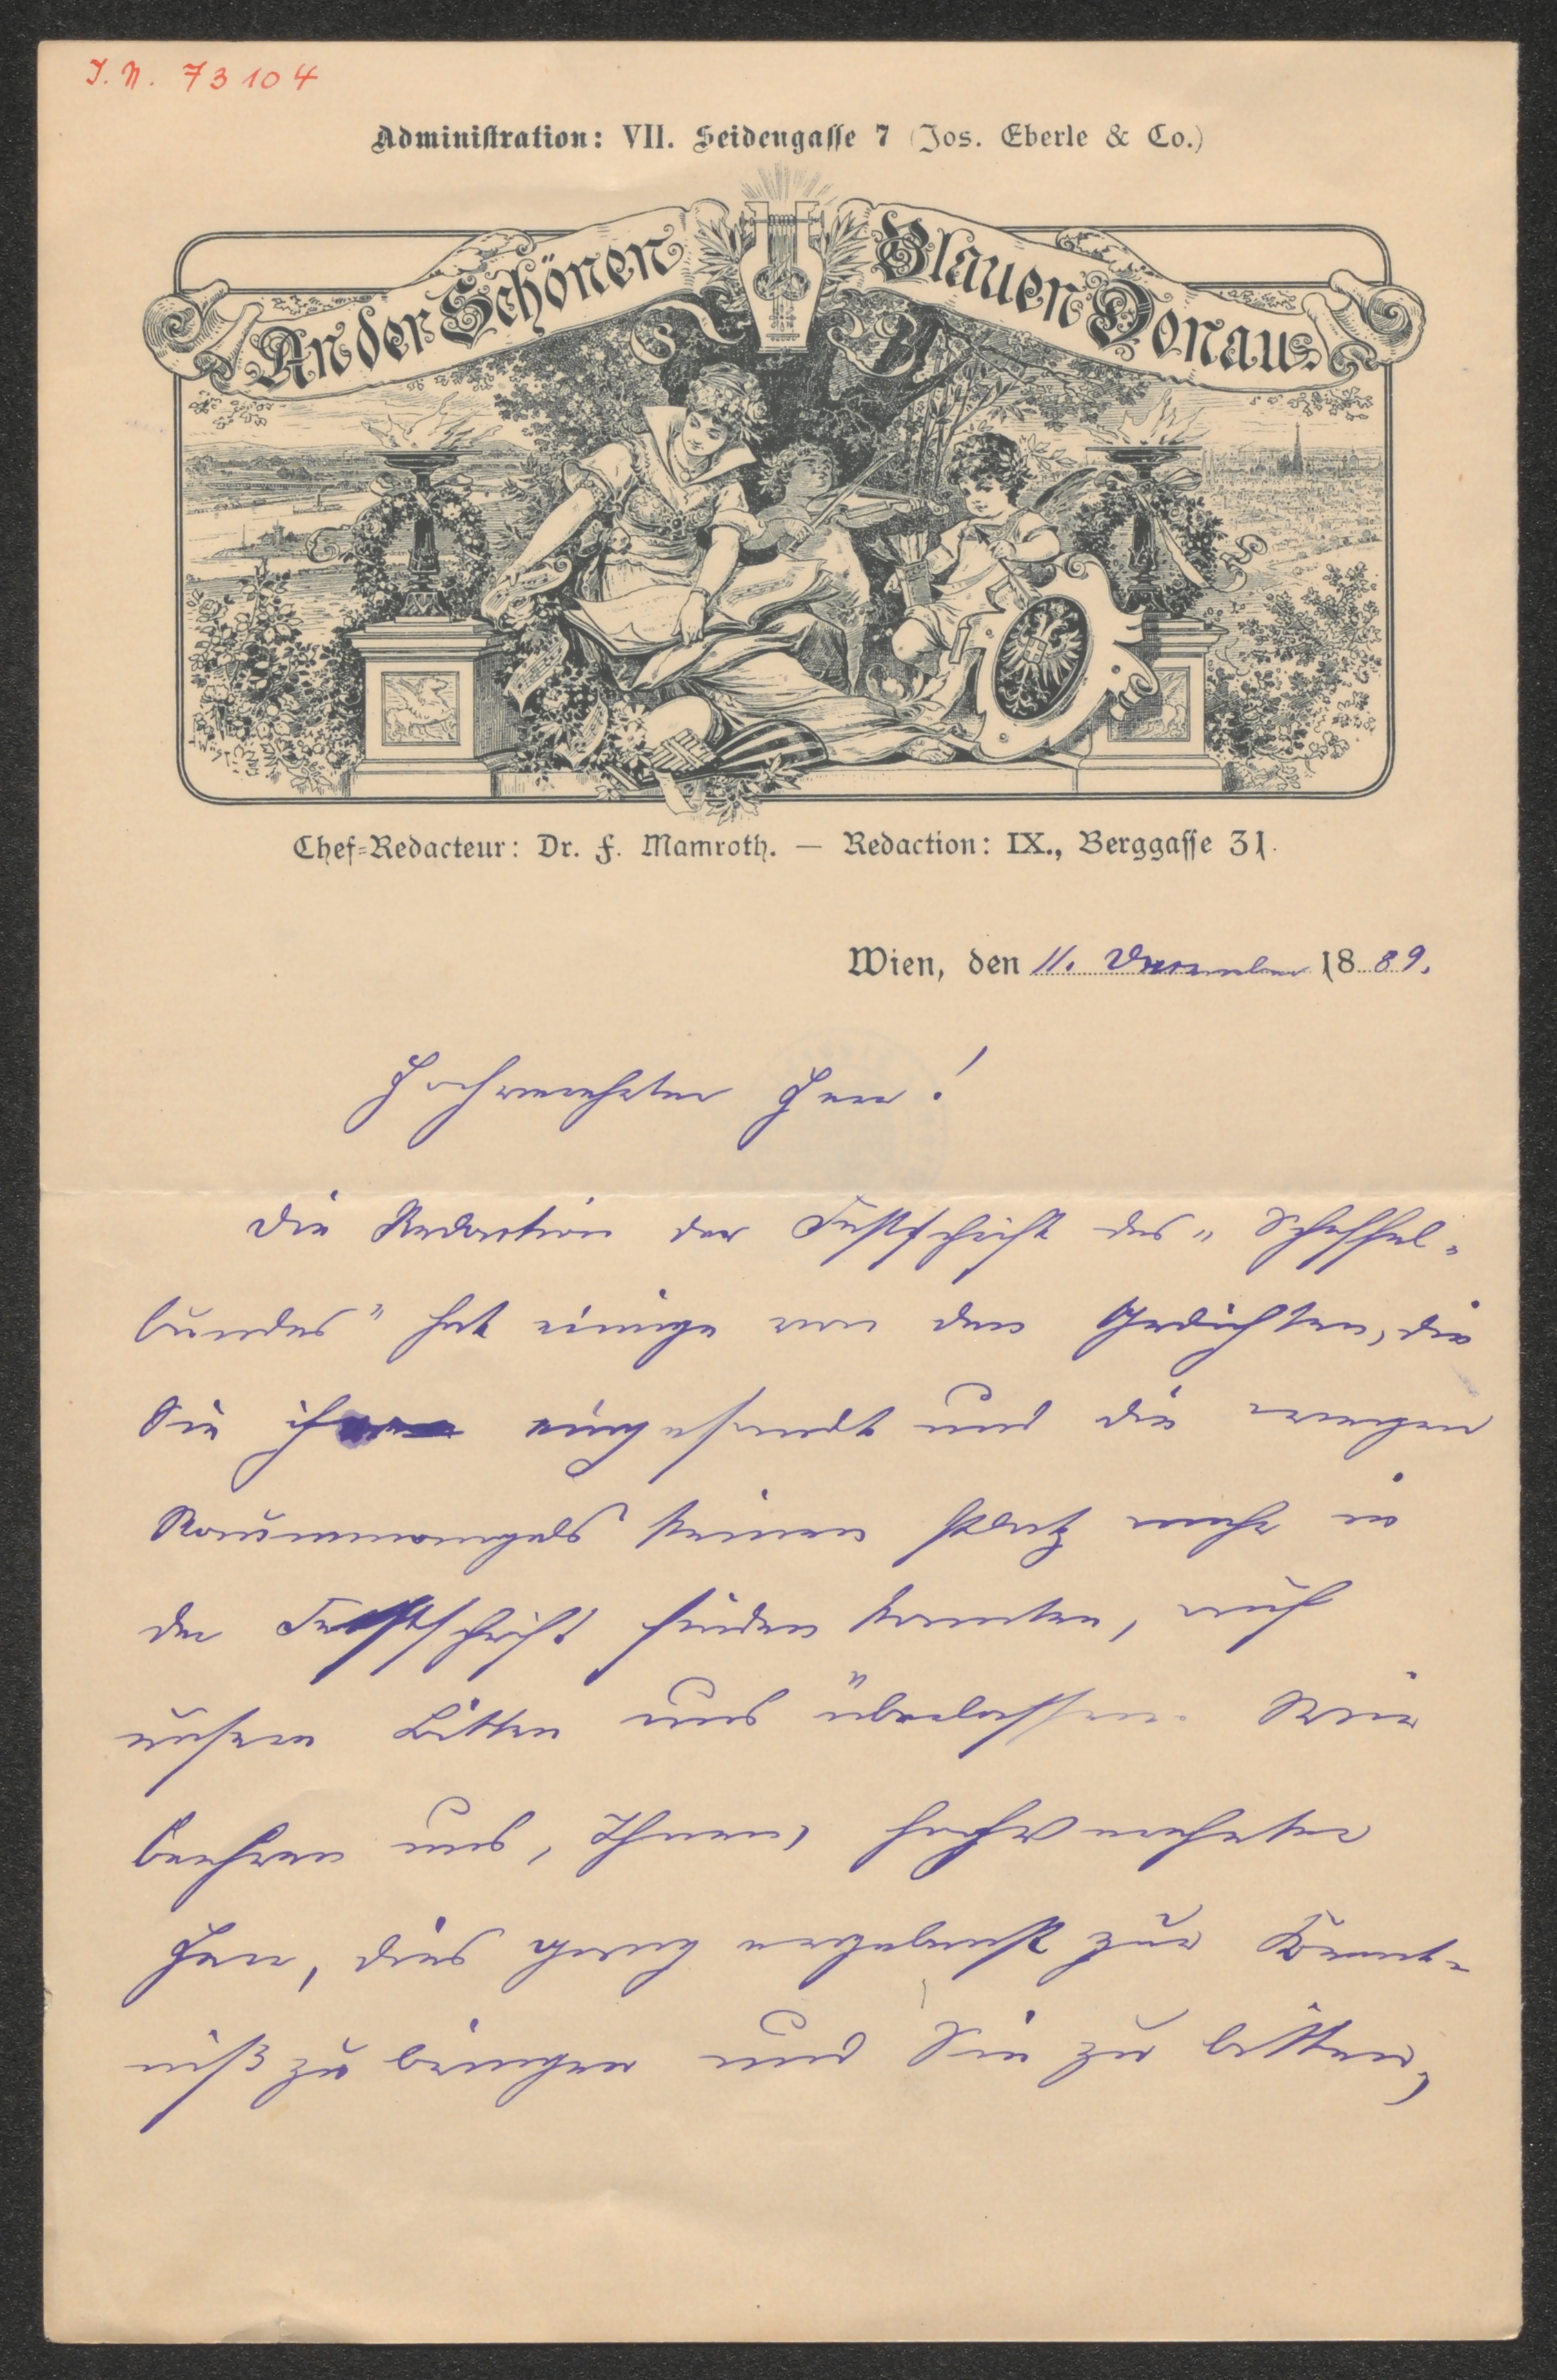 I. N. 73104
Administration: VII. Seidengasse 7 (Jos. Eberle & Co.)
An der Schönen Blauen Donau.
Chef-Redacteur: Dr. F. Mamroth. — Redaction: IX., Berggasse 31.
Wien, den 11. Dezember 1889.
Hochverehrter Herr!
Die Redaction der Festschrift des „Scheffel-
bundes" hat einige von den Gedichten, die
Sie ihr eingesandt und die wegen
Raummangels keinen Platz mehr in
der Festschrift finden konnten, auf
unsere Bitten uns überlassen. Wir
beehren uns, Ihnen, hochverehrter
Herr, dies ganz ergebenst zur Kennt-
niß zu bringen und Sie zu bitten,